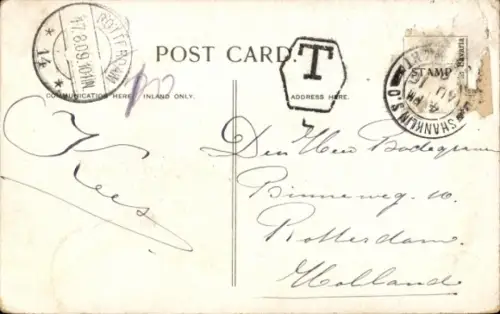 ROTTERDAM
17.8.09.10-11N
* 14 *
POST CARD.
T
COMMUNICATION HERE INLAND ONLY.
ADDRESS HERE.
STAMP
Bavaria
SHANKLIN S.O.
4 PM
AU
Kees
Den Heer Bodegraven
Binneweg. 10.
Rotterdam.
Holland